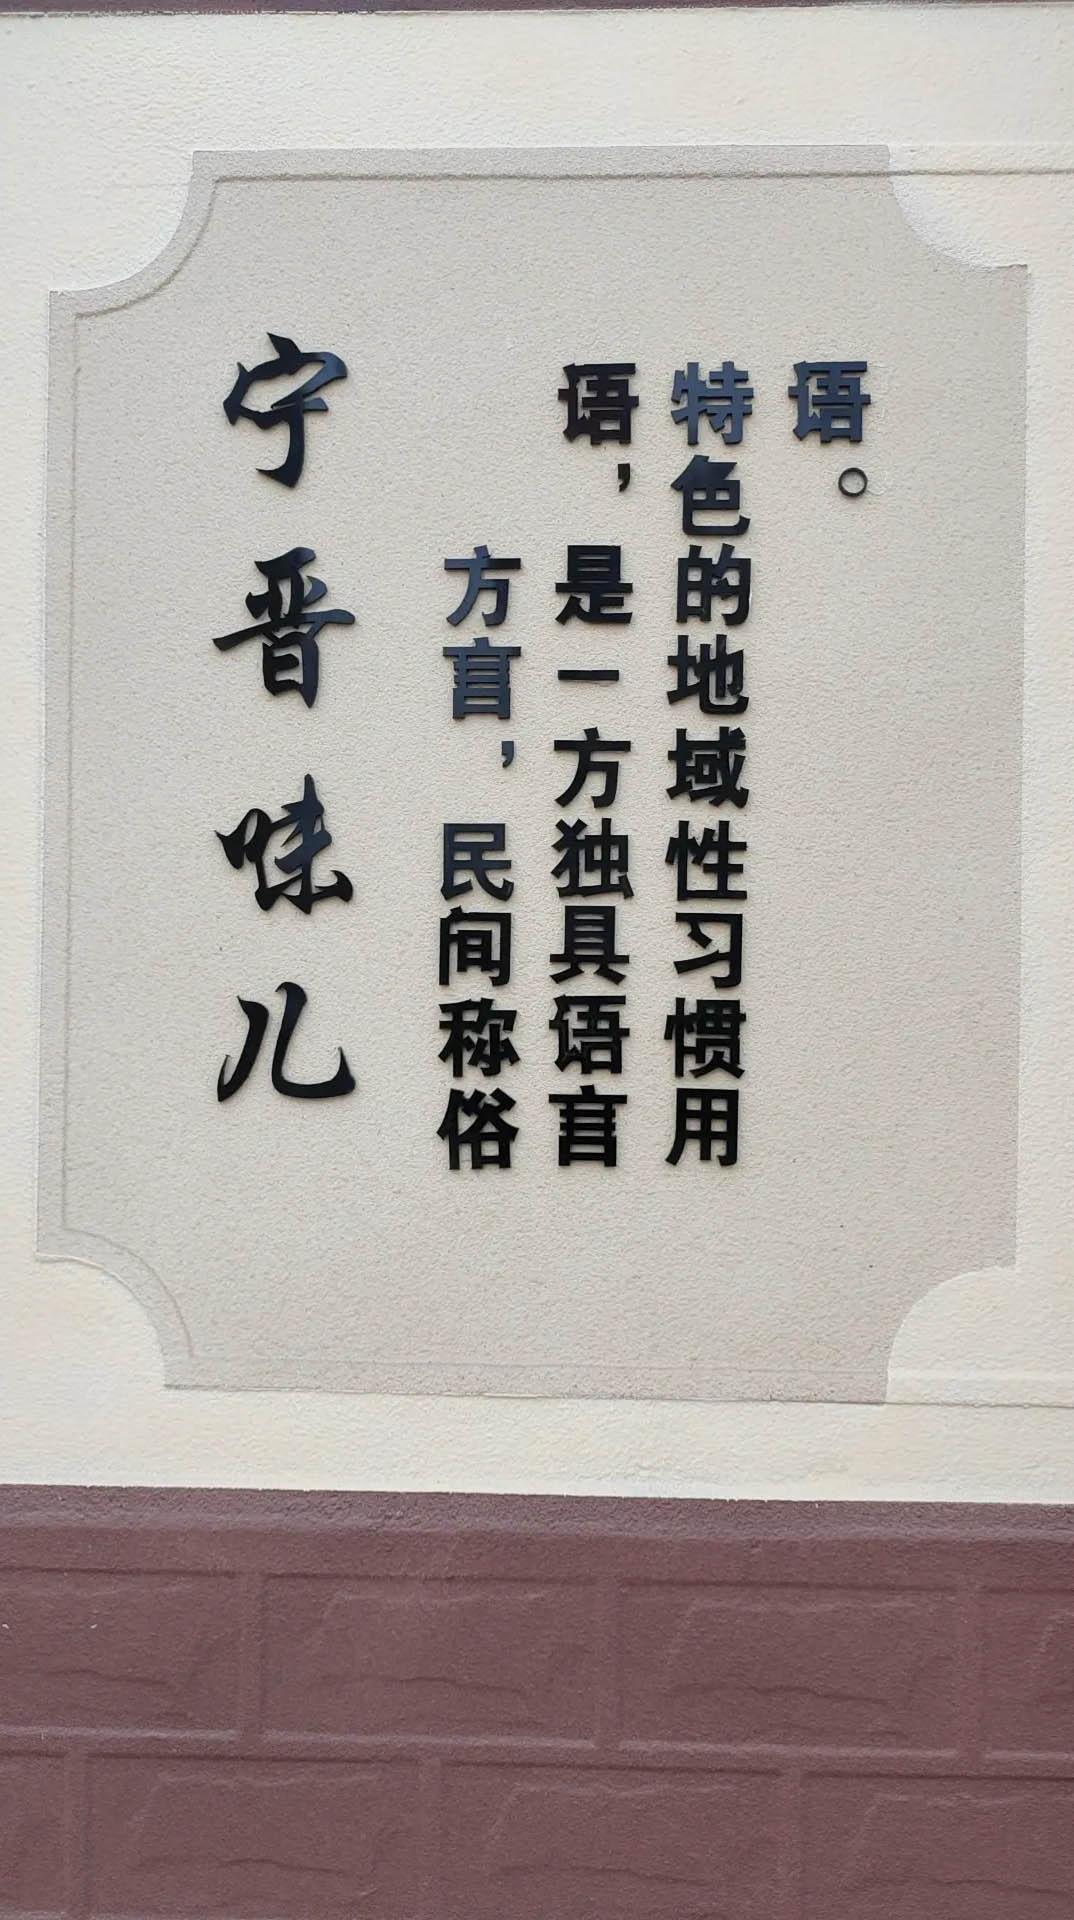 宁晋味儿
方言，民间称俗
语，是一方独具语言
特色的地域性习惯用
语。